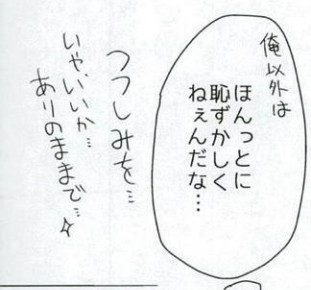 俺以外は
ほんっとに
恥ずかしく
ねぇんだな…
つつしみを…
いや、いいか…
ありのままで…☆